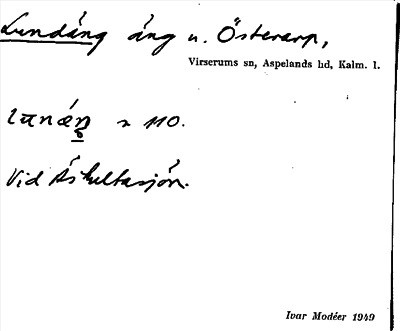 Lundäng äng u. Österarp,
Virserums sn, Aspelands hd, Kalm. l.
110.
Vid
Ivar Modéer 1949